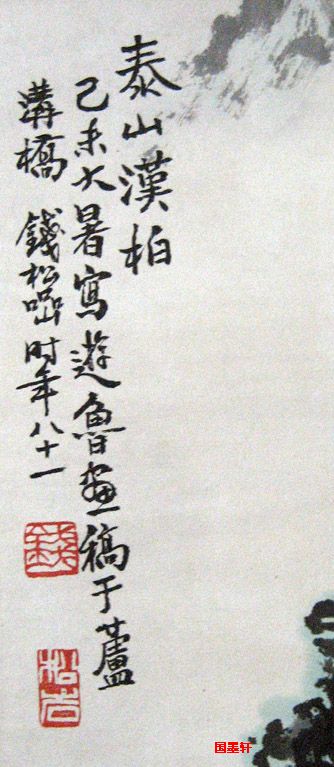 泰山漢柏
己未大暑寫遊魯畫稿于蘆
溝橋 錢松喦时年八十一
錢
松喦
国墨轩